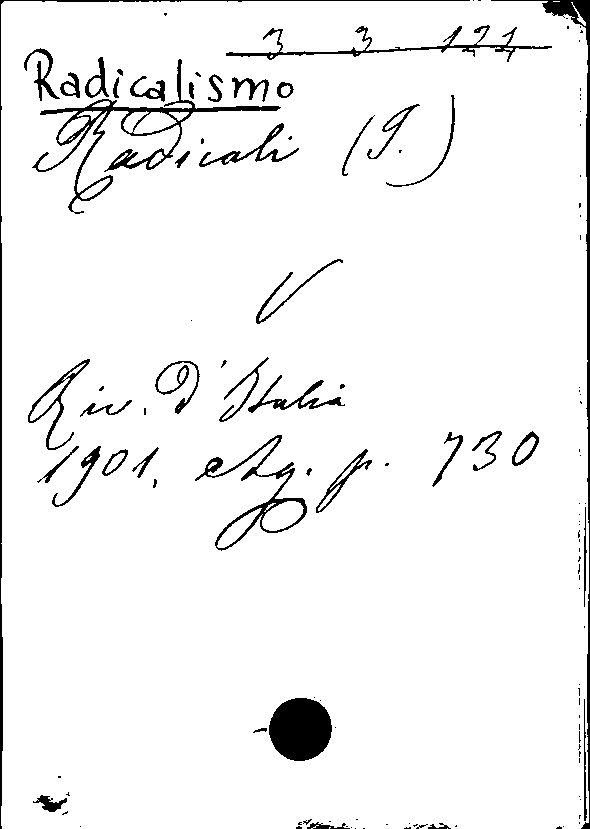 3 3 121
Radicalismo
Radicali (I.)
V
Riv. d'Italia
1901. Ag. p. 730